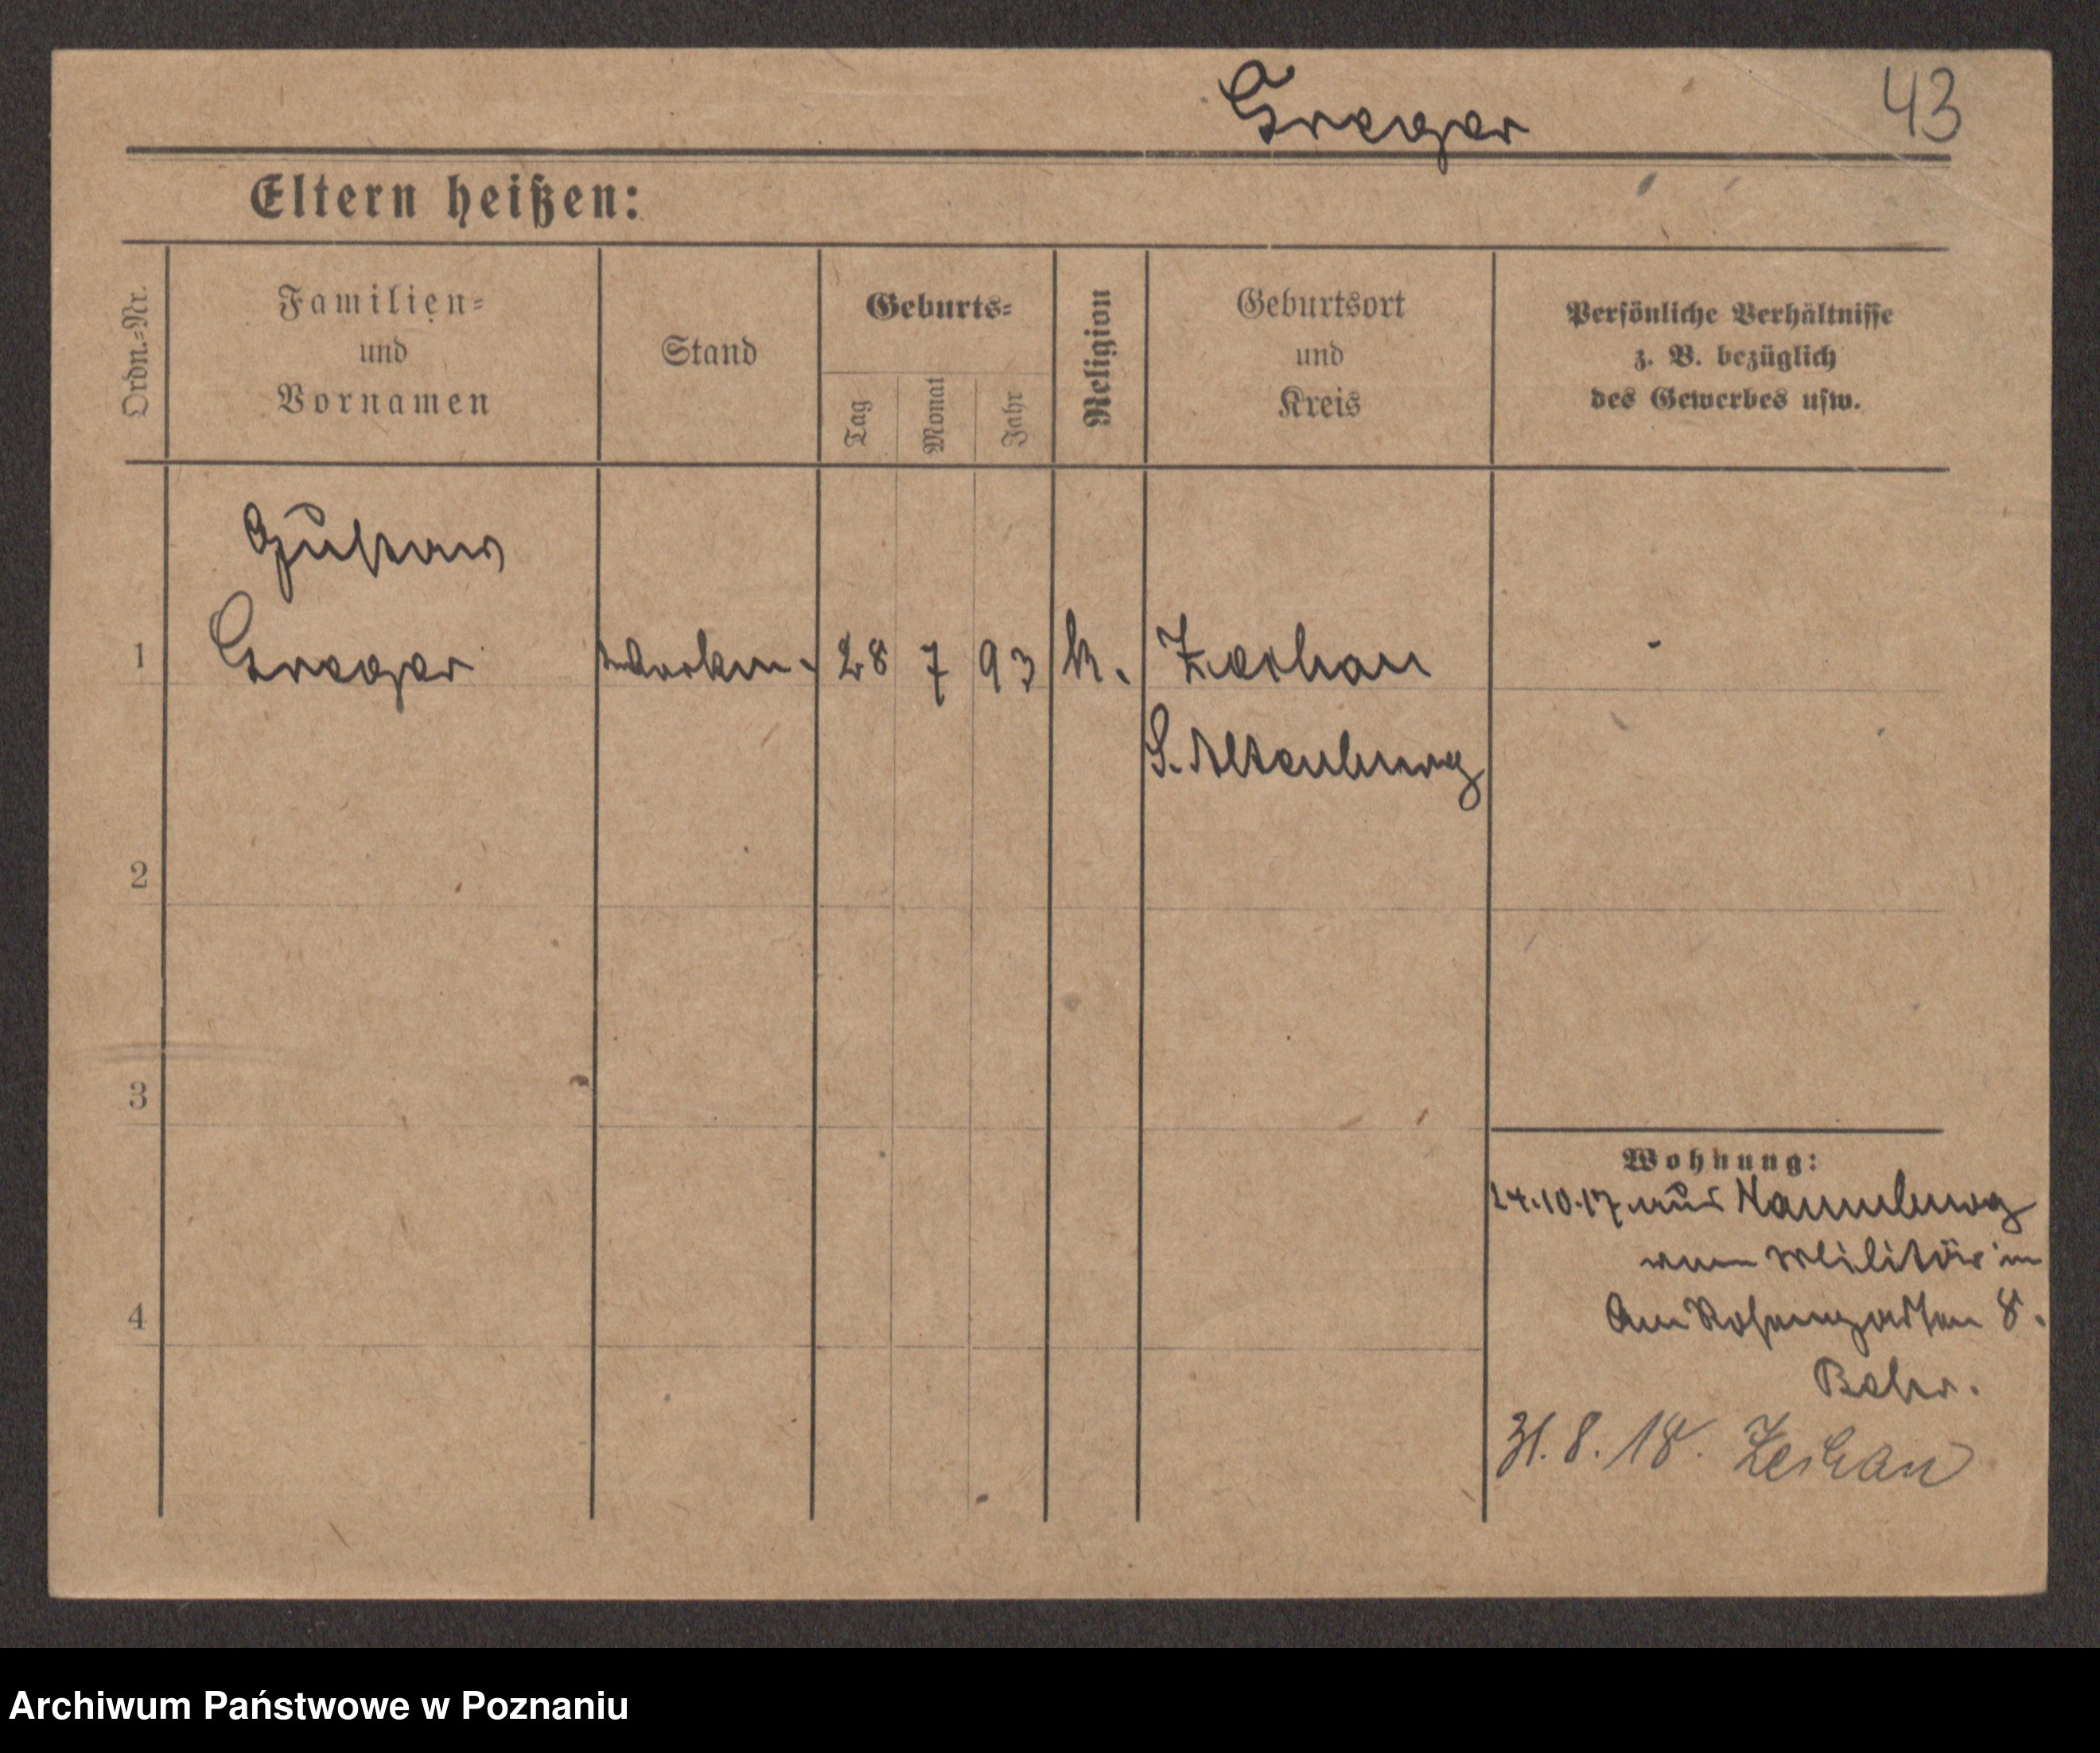 Greger
43
Eltern heißen:
Ordn.-Nr.
Familien-
und
Vornamen
Stand
Geburts-
Tag
Monat
Jahr
Religion
Geburtsort
und
Kreis
Persönliche Verhältnisse
z. B. bezüglich
des Gewerbes usw.
Gustav
1 Greger 28 7 93 k. -
S. Altenburg
2
3
4
Wohnung:
24.10.17 aus Naumburg
vom Militär in
Am Rosengarten 8.
31.8.18.
Archiwum Państwowe w Poznaniu